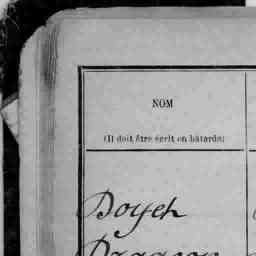 NOM
(Il doit être écrit en bâtarde)
Boyer